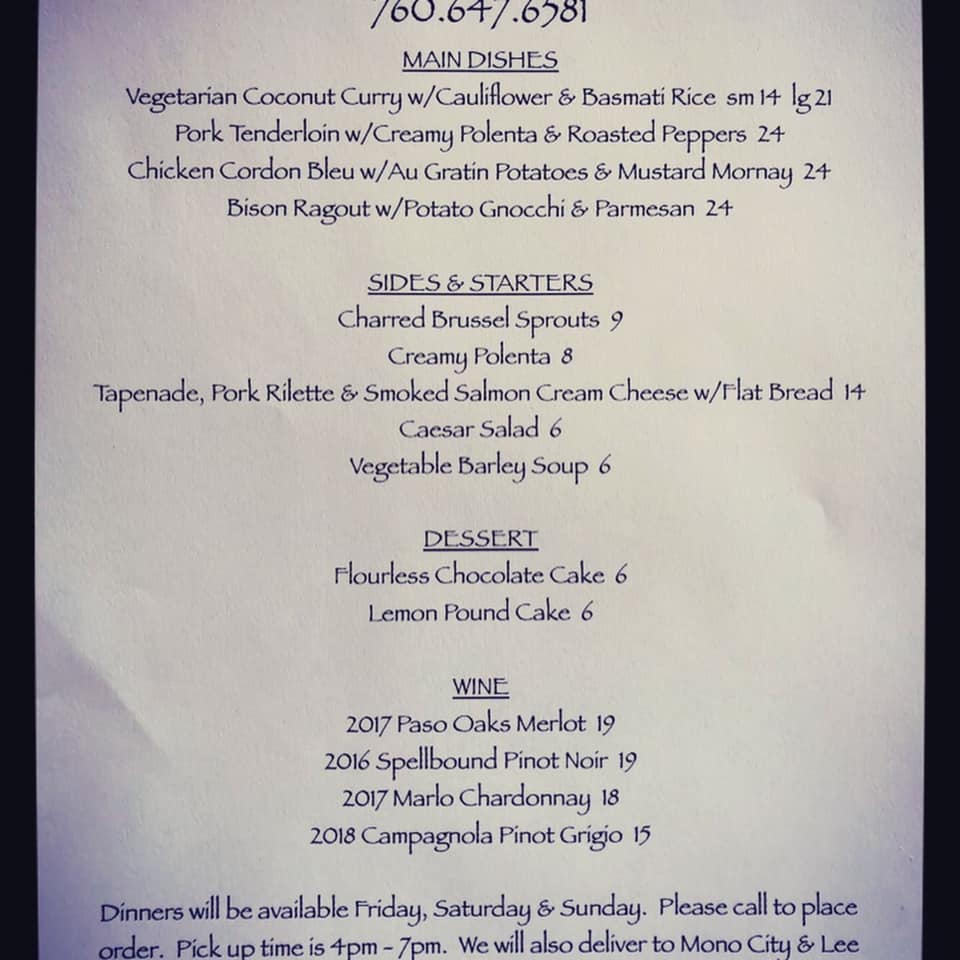 760.647.6581
MAIN DISHES
Vegetarian Coconut Curry w/Cauliflower & Basmati Rice sm 14 lg 21
Pork Tenderloin w/Creamy Polenta & Roasted Peppers 24
Chicken Cordon Bleu w/Au Gratin Potatoes & Mustard Mornay 24
Bison Ragout w/Potato Gnocchi & Parmesan 24
SIDES & STARTERS
Charred Brussel Sprouts 9
Creamy Polenta 8
Tapenade, Pork Rilette & Smoked Salmon Cream Cheese w/Flat Bread 14
Caesar Salad 6
Vegetable Barley Soup 6
DESSERT
Flourless Chocolate Cake 6
Lemon Pound Cake 6
WINE
2017 Paso Oaks Merlot 19
2016 Spellbound Pinot Noir 19
2017 Marlo Chardonnay 18
2018 Campagnola Pinot Grigio 15
Dinners will be available Friday, Saturday & Sunday. Please call to place
order. Pick up time is 4pm - 7pm. We will also deliver to Mono City & Lee